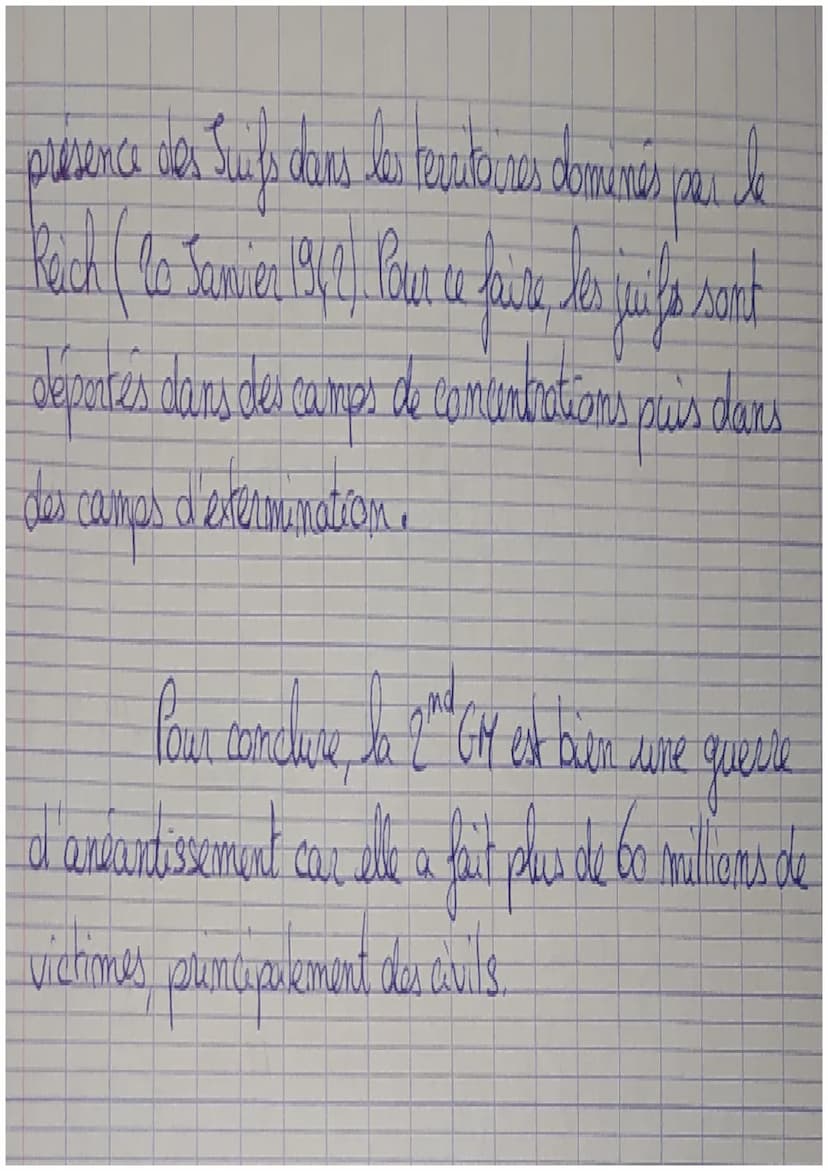 présence des Juifs dans les territoires dominés par le
Reich (20 Janvier 1942). Pour ce faire, les juifs sont
déportés dans des camps de concentrations puis dans
des camps d'extermination.
Pour conclure, la 2nd GM est bien une guerre
d'anéantissement car elle a fait plus de 60 millions de
victimes, principalement des civils.